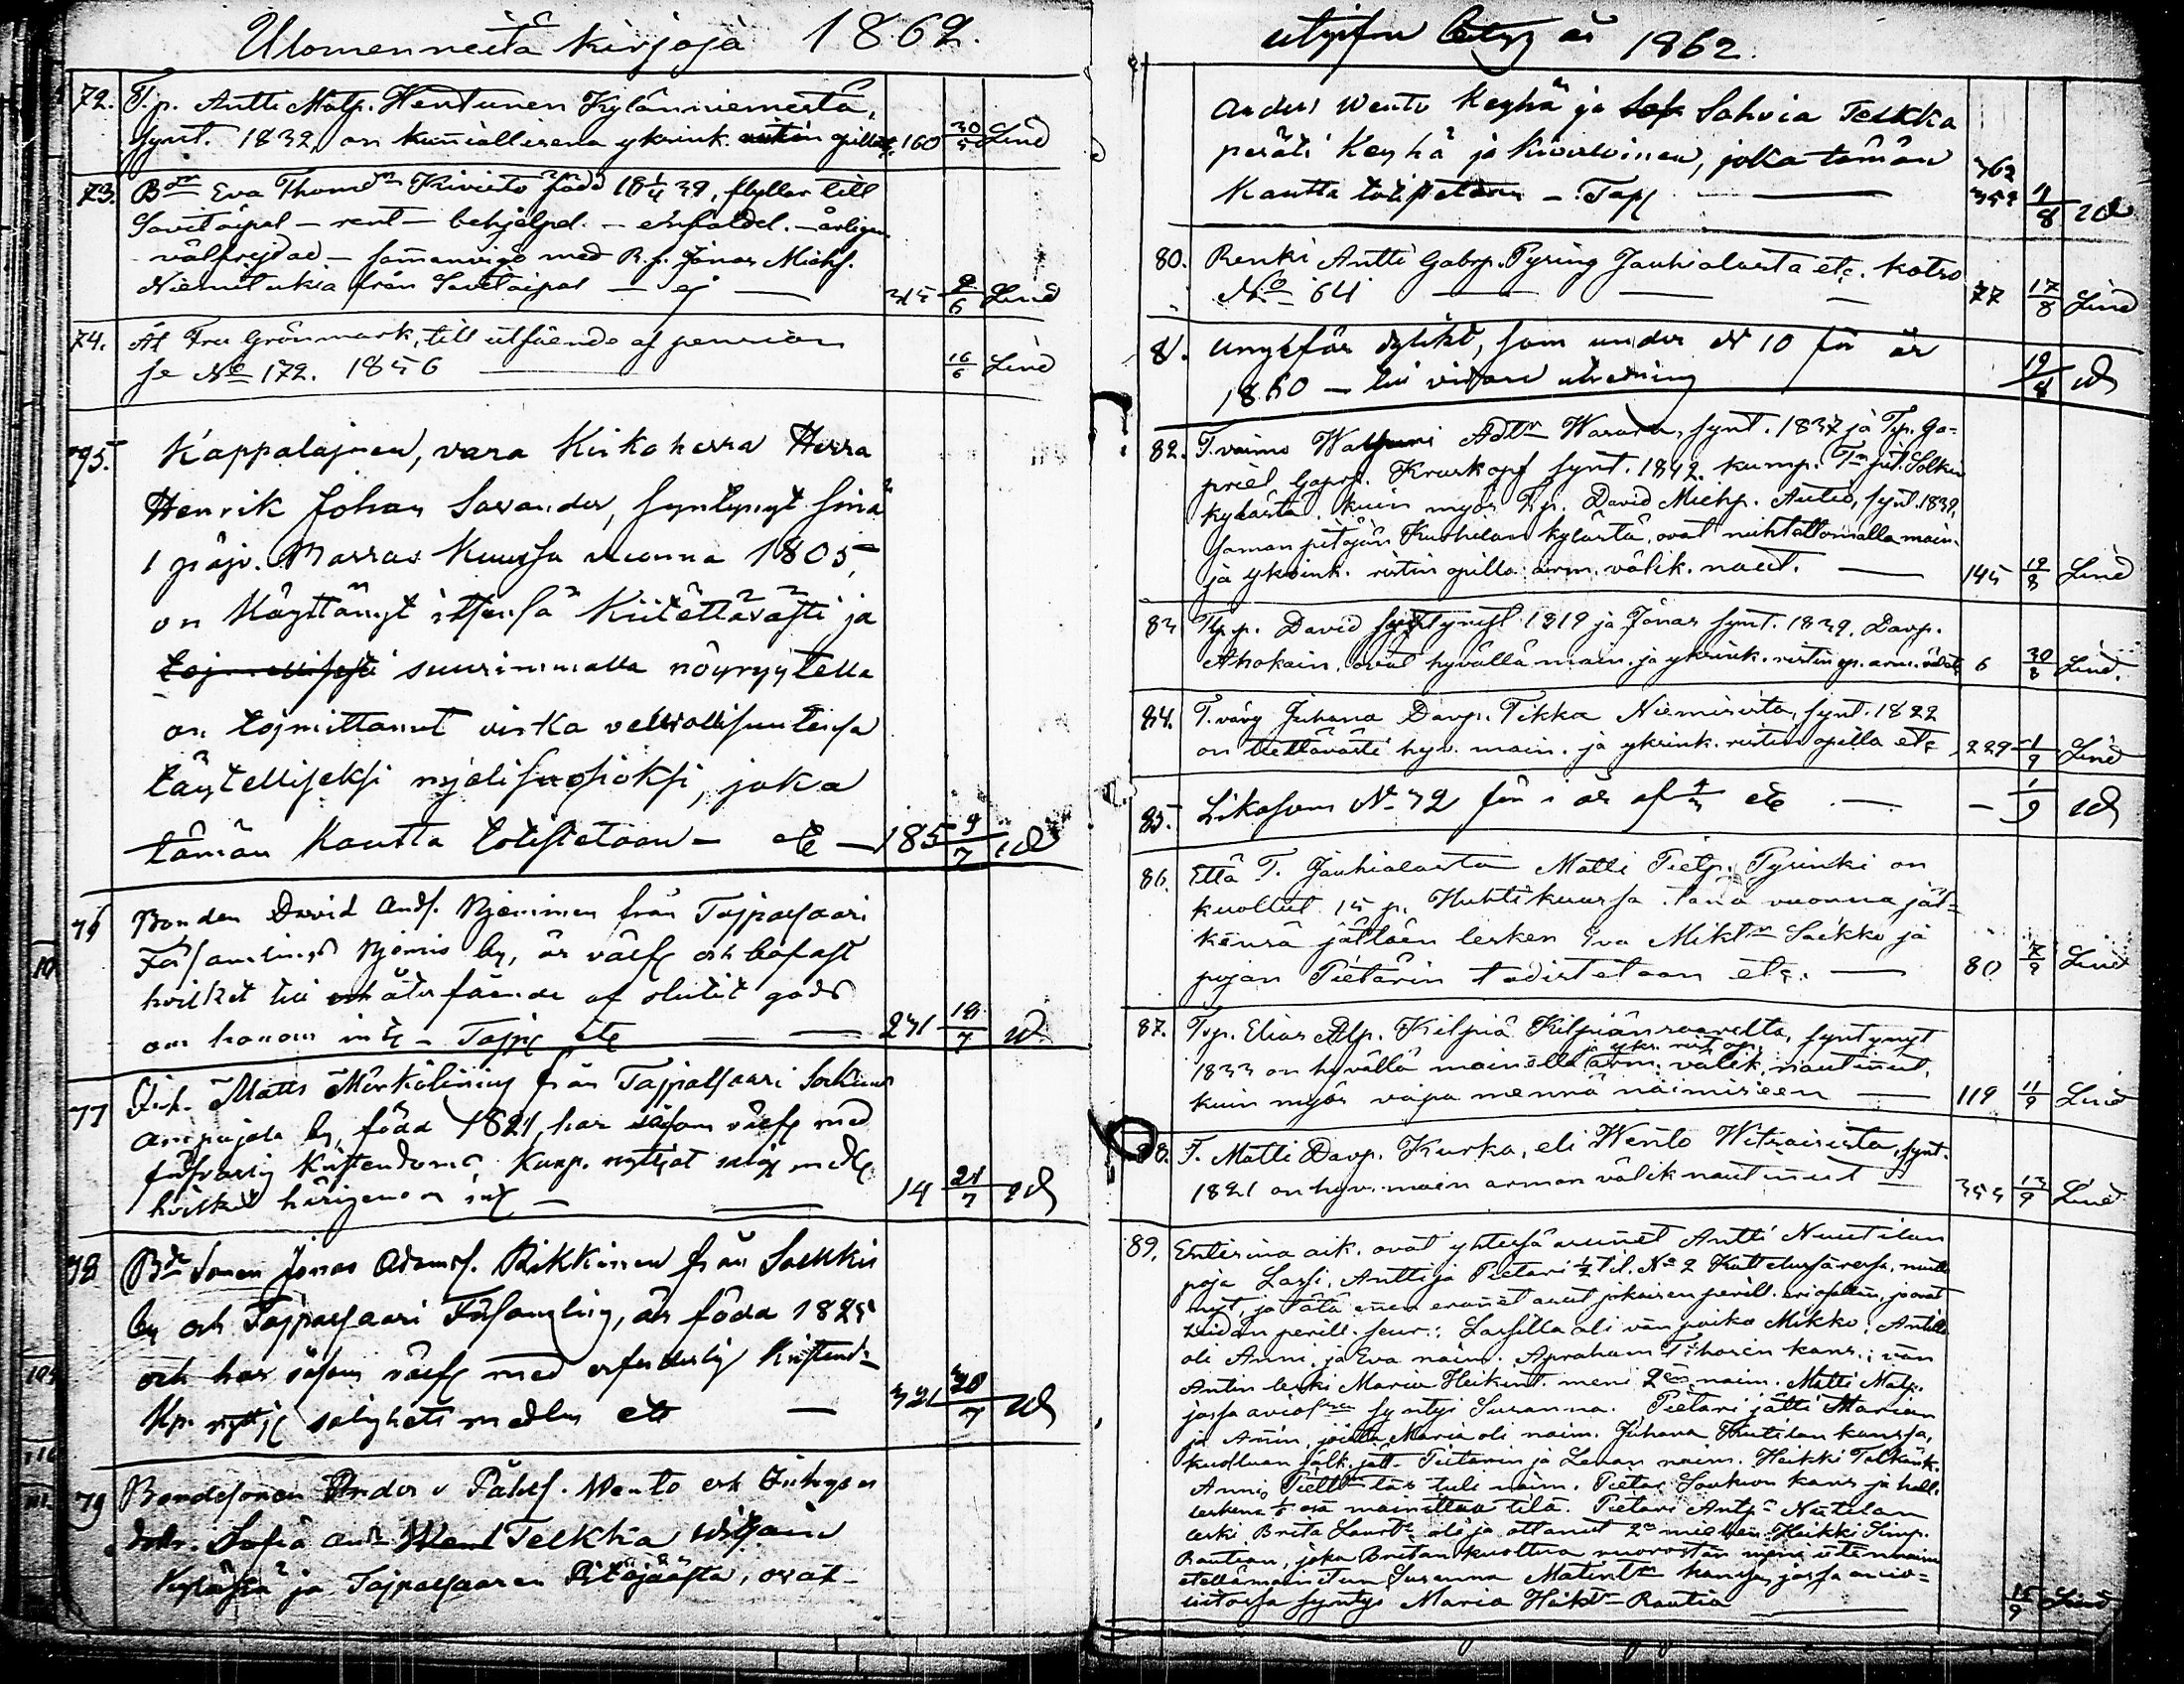 Ulomenneitä kirjoja 1862.
72. T.p. Antti Matp. Hentunen Kylänniemestä,
synt. 1832, on kuniallisena ykrink. ristin opillaz. 160 30/5 Lind
73. Bdr Eva Thomdr Kiviesto född 18 1/4 39, flyttar till
Savitaipal – rent – behjelpel. – enfaldel. – ärligen
välfrejdad – sammanvigd med B.s. Jonas Michs.
Niemitukia från Savitaipal – ej — 315 2/6 Lind
74. At Fru Grönmark, till utfående af pension
se No 172. 1856 — 16/6 Lind
75. Kappalajnen, vara Kirkoherra Herra
Henrik Johan Savander, syntynyt sinä
1 päjv. Marras Kuussa vuonna 1805,
on käyttänyt itsensä kiitettävästi ja
suurimmalla nöyryytellä
on tojmittanut virka velvollisuutensa
täytelliseksi mjelisuosioksi, joka
tämän kautta totistetaan – etc — 185 9/7 id
76 Bonden David Ands. Njeminen från Tajpalsaari
Församlings Njemis by, är välfr och bofast
hvilket till återfående af slutit gods
om honom int. – Tajp etc — 231 19/7 id
77 Matts Mörkölining från Tajpalsaari Sockens
by, född 1821, har såsom välfr med
försvarlig Kristendoms Kunp. nyttjat salig medl
hvilket härigenom int — 14 21/7 id
78 Bde Sonen Jonas Adams. Rikkinen från Solkkis
by och Tajpalsaari Församling, är född 1825
och har såsom välfr med erforderlig Kristend=
Kp. nyttj salighets medlen etc — 321 28/7 id
79 Bondesonen Anders Påhls. Wento och
dottr. Sofia And. Telkka
Kylästä ja Tajpalsaaren Pitäjäästä, ovat
utgifne betyg år 1862.
Anders Wento Keyhä ja Sohvia Telkka
peräti Keyhä ja kivuloinen, joka tämän
kautta totistetaan – Tajp — 362 353 11/8 id
80. Renki Antti Gabrp. Pyring Jauhialasta etc. katso
No 64 — 77 17/8 Lind
81. Ungefär dylikt, som under N 10 för år
1860 – till vidare utredning 19/8 id
82. T. vaimo Adtr Wasara, synt. 1837 ja Tp. Ga=
priel Gaprp. Kruskopf synt. 1842. kump. Solkin
kylästä, kuin myös T.p. David Michp. Autio, synt. 1839,
saman pitäjän Kurhilan kylästä, ovat nuhtettomalla main.
ja ykrink. ristin opilla arm. välik. naut. — 145 19/8 Lind
83 T.p. David syntynyt 1819 ja Jonas synt. 1839. Davp.
Ahokain, ovat hyvällä main. ja ykrink. ristin op. arm. välik 6 30/8 Lind.
84. T. väv Juhana Davp. Tikka Niemisistä, synt. 1822
on tiettävästi hyv. main. ja ykrink. ristin opilla etc 229 1/9 Lind
85. Likasom N 32 för i år af 4/3 etc — – 1/9 id
86. Että T. Jauhialasta Matti Pietp. Pyrinki on
kuollut 15 p. Huhtikuussa tänä vuonna jät=
kensä jättäen lesken Eva Miktr Säkkö ja
pojan Pietarin todistetaan etc. — 80 7/9 Lind
87. T.p. Elias Kilpiä Kilpiänsaarelta, syntynyt
ja ykr. rist op.
1833 on hyvällä mainella arm. välik. nautinut,
kuin myös vapa mennä naimiseen — 119 11/9 Lind
88. T. Matti Davp. Kurka, eli Wento Witsaisista, synt.
1821 on hyv. main arman välik nautinut — 353 13/9 Lind
89. Entisinä aik. ovat yhtessä asunet Antti Nuutilan
poja Lassi, Antti ja Pietari 1/2 til. No 2
nyt, ja tätä enen eronet jokaisen perill. ja ovat
heidän perill. seur.: Lassilla oli vän poika Mikko, Antilla
oli Anni, ja Eva naim. Apraham Tihosen kans.; vän
Antin leski Maria Heikint. meni 2en naim. Matti Matp.
jossa aviossa syntyi Susanna. Pietari jätti Marian
ja Annin, joista Maria oli naim. Juhana Nuutilan kanssa,
kuoltuan jälk. jätt. Pietarin ja Leenan naim. Heikki Talkank.
Anni, Piettr täs tuli naim. Pietar Soukon kans ja hall.
leskenä 1/6 osa mainittua tila. Pietari Antp. Nutilan
leski Brita Laurtr oli ja ottanut 2n miehen Heikki Simp.
Rautian, joka Britan kuoltua vuorostan meni
etellämainitun Susanna Matintr kansa, jossa avio=
liitossa syntyi Maria Heiktr Rautia — 15/9 Lind